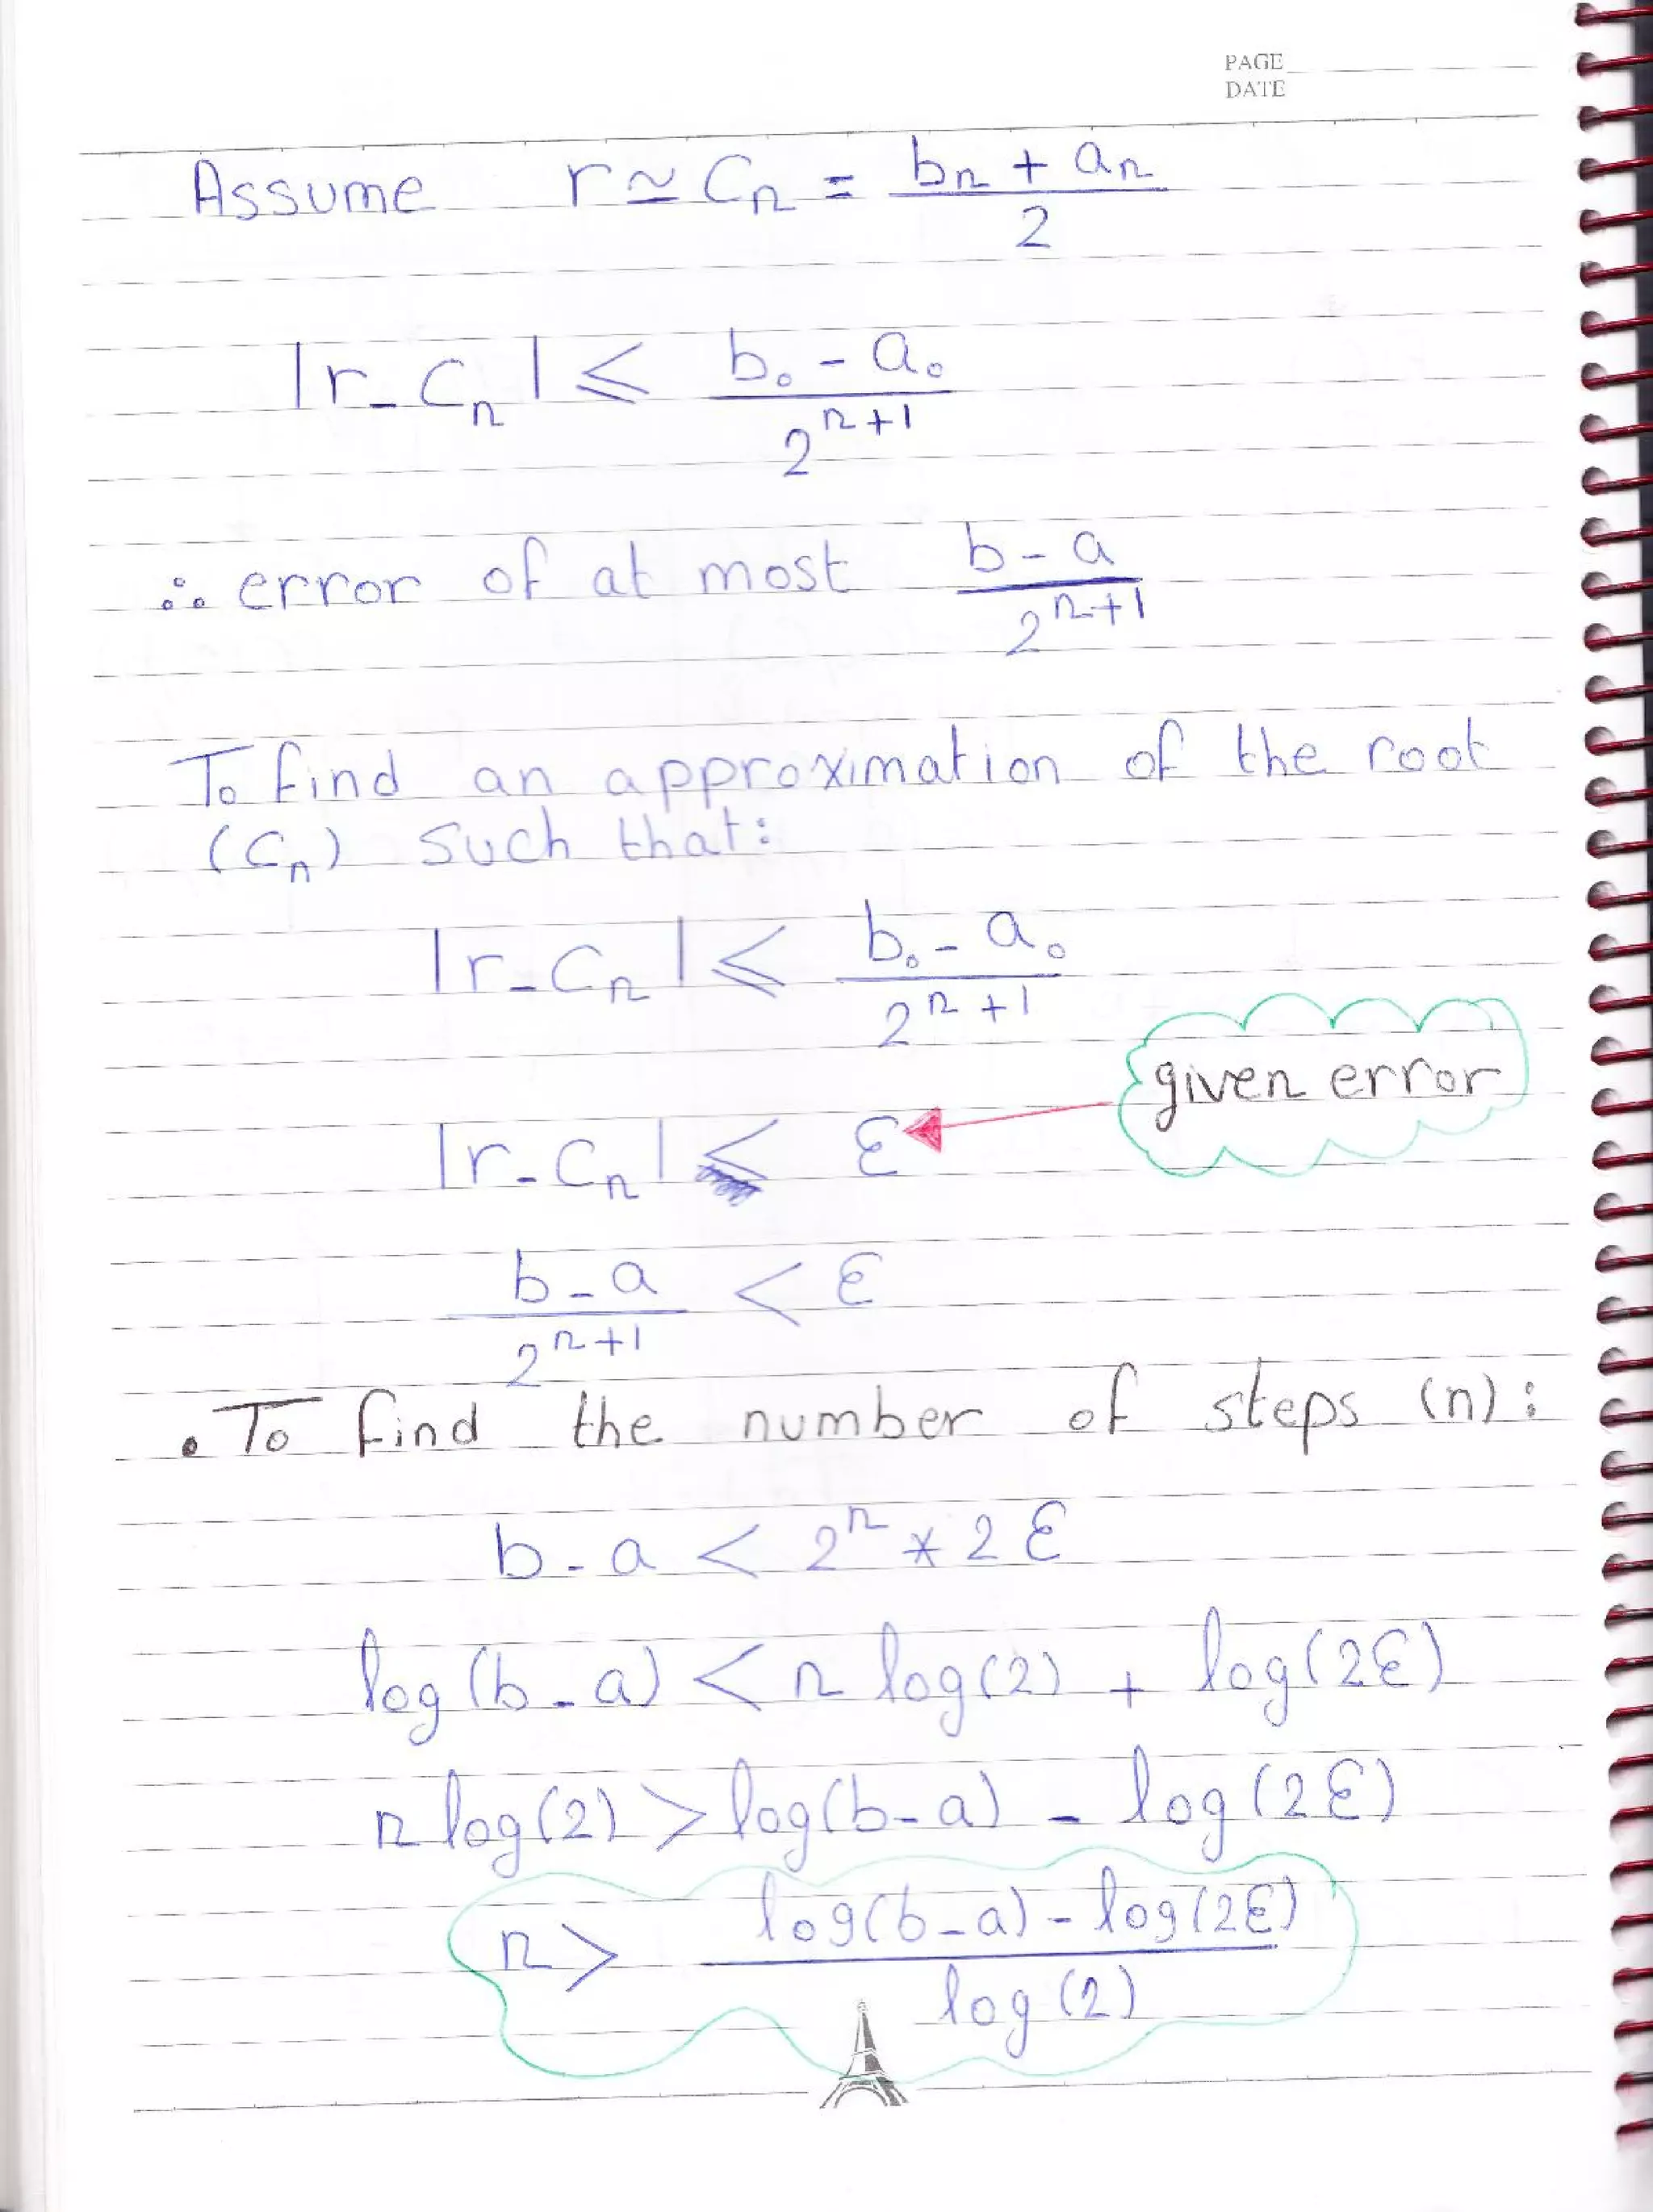 PAGE
DATE
Assume r ≃ Cₙ = (bₙ + aₙ)/2
|r - Cₙ| ⩽ (b₀ - a₀)/2ⁿ⁺¹
∴ error of at most (b - a)/2ⁿ⁺¹
To find an approximation of the root
(Cₙ) such that:
|r - Cₙ| ⩽ (b₀ - a₀)/2ⁿ⁺¹
given error
|r - Cₙ| ⩽ ε
(b - a)/2ⁿ⁺¹ < ε
• To find the number of steps (n):
b - a < 2ⁿ * 2ε
log(b - a) < n log(2) + log(2ε)
n log(2) > log(b - a) - log(2ε)
n > (log(b - a) - log(2ε))/log(2)